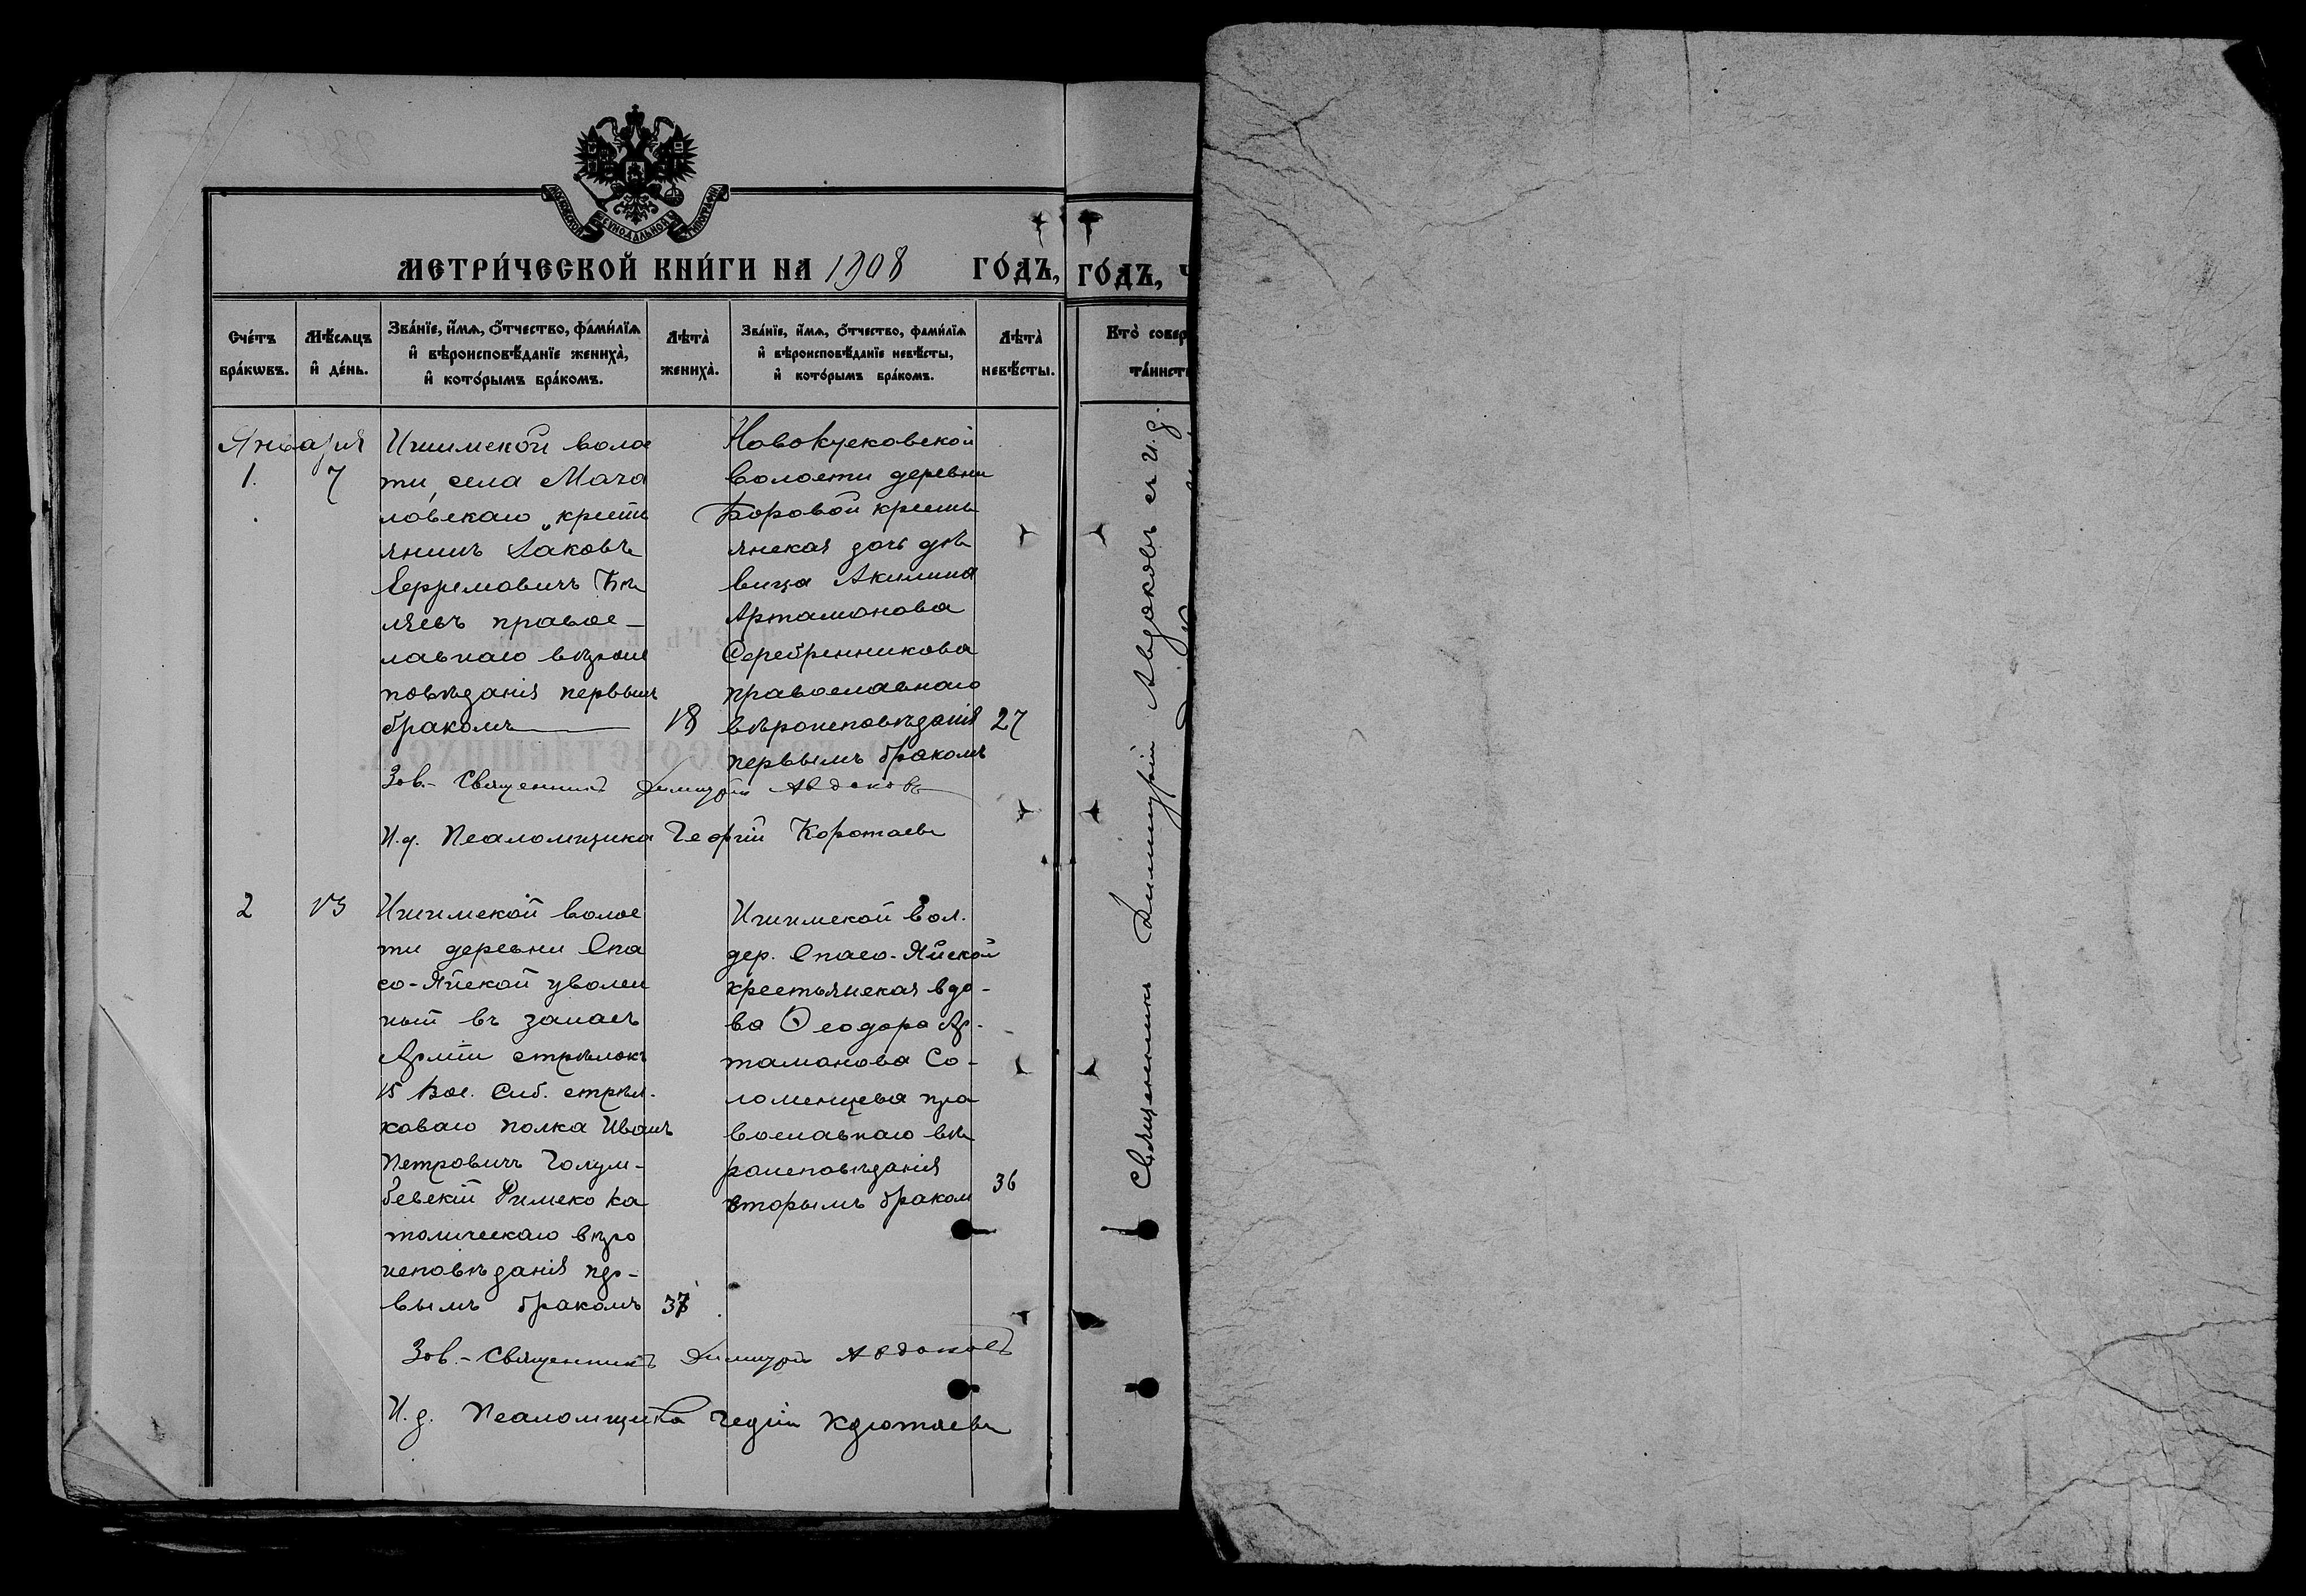 МОСКОВСКОЙ СѴНОДАЛЬНОЙ ТИПОГРАФІИ
МЕТРИ́ЧЕСКОЙ КНИ́ГИ НА 1908 ГО́ДЪ,
Сче́тъ бра́кѡвъ.
Мѣ́сѧцъ и҆ де́нь.
Зва́нїе, и҆́мѧ, ѻ҆́тчество, фами́лїѧ
и҆ вѣроисповѣ́данїе жениха̀,
и҆ кото́рымъ бра́комъ.
Лѣта̀ жениха̀.
Зва́нїе, и҆́мѧ, ѻ҆́тчество, фами́лїѧ
и҆ вѣроисповѣ́данїе невѣ́сты,
и҆ кото́рымъ бра́комъ.
Лѣта̀ невѣ́сты.
Января
1. 7
Ишимской волос
ти села Мача
ловскаго крестьо
янинъ Іаковъ
Ефремовичъ Бѣ
ляевъ правос-
лавнаго вѣроис
повѣданія первым
бракомъ
18
Новокусковской
волости деревни
Боровой кресть
янская дочь дѣ
вица Акилина
Артамонова
Серебренникова
православнаго
вѣроисповѣданія
первымъ бракомъ
27
Зав.- Священникъ Димитрій Авдаковъ
И.д. Псаломщика Георгій Коротаевъ
2 13
Ишимской волос
ти деревни Спа
со-Яйской уволен
ный въ запасъ
Арміи стрѣлокъ
15 Вос. Сиб. стрѣл.
коваго полка Иванъ
Петровичъ Голум-
бевскій Римско ка
толическаго вѣро
исповѣданія пер-
вымъ бракомъ
37
Ишимской вол.
дер. Спасо-Яйской
крестьянская вдо-
ва Ѳеодора Ар-
таманова Со-
ломенцева пра
вославнаго вѣ
роисповѣданія
вторымъ браком
36
Зав.- Священникъ Димитрій Авдаковъ
И.д. Псаломщика Георгій Коротаевъ
ГО́ДЪ,
Кто̀ совер
та́инст
Священникъ Димитрій Авдаковъ съ и.д.